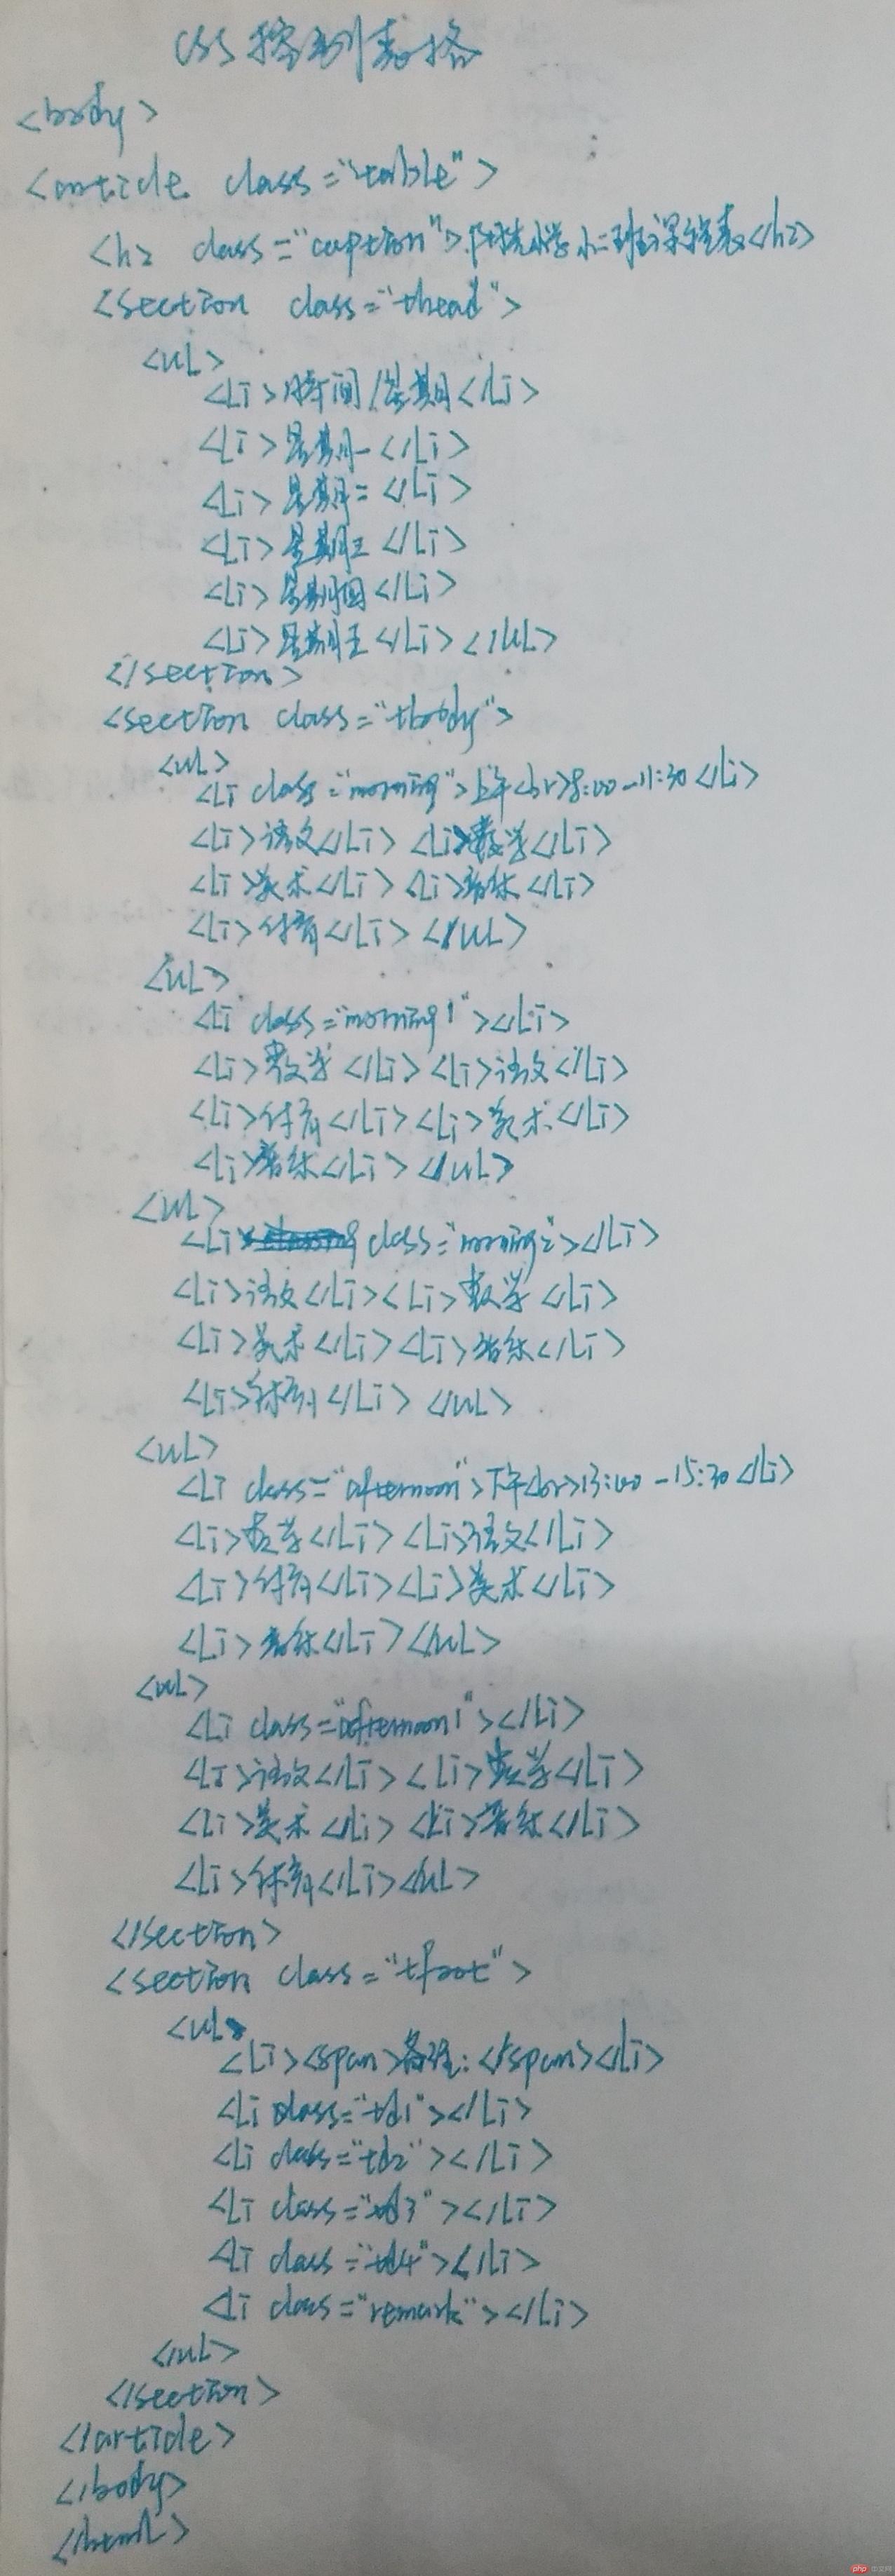 CSS控制表格
<body>
<article class="table">
<h2 class="caption">小二班课程表</h2>
<section class="thead">
<ul>
<li>时间/星期</li>
<li>星期一</li>
<li>星期二</li>
<li>星期三</li>
<li>星期四</li>
<li>星期五</li></ul>
</section>
<section class="tbody">
<ul>
<li class="morning">上午<br>8:00-11:30</li>
<li>语文</li> <li>数学</li>
<li>美术</li> <li>音乐</li>
<li>体育</li></ul>
<ul>
<li class="morning1"></li>
<li>数学</li> <li>语文</li>
<li>体育</li> <li>美术</li>
<li>音乐</li></ul>
<ul>
<li class="morning2></li>
<li>语文</li> <li>数学</li>
<li>美术</li> <li>音乐</li>
<li>体育</li> </ul>
<ul>
<li class="afternoon">下午<br>13:00-15:30</li>
<li>数学</li> <li>语文</li>
<li>体育</li> <li>美术</li>
<li>音乐</li></ul>
<ul>
<li class="afternoon1"></li>
<li>语文</li> <li>数学</li>
<li>美术</li> <li>音乐</li>
<li>体育</li></ul>
</section>
<section class="tfoot">
<ul>
<li><span>备注:</span></li>
<li class="td1"></li>
<li class="td2"></li>
<li class="td3"></li>
<li class="td4"></li>
<li class="remark"></li>
</ul>
</section>
</article>
</body>
</html>
php 中文网